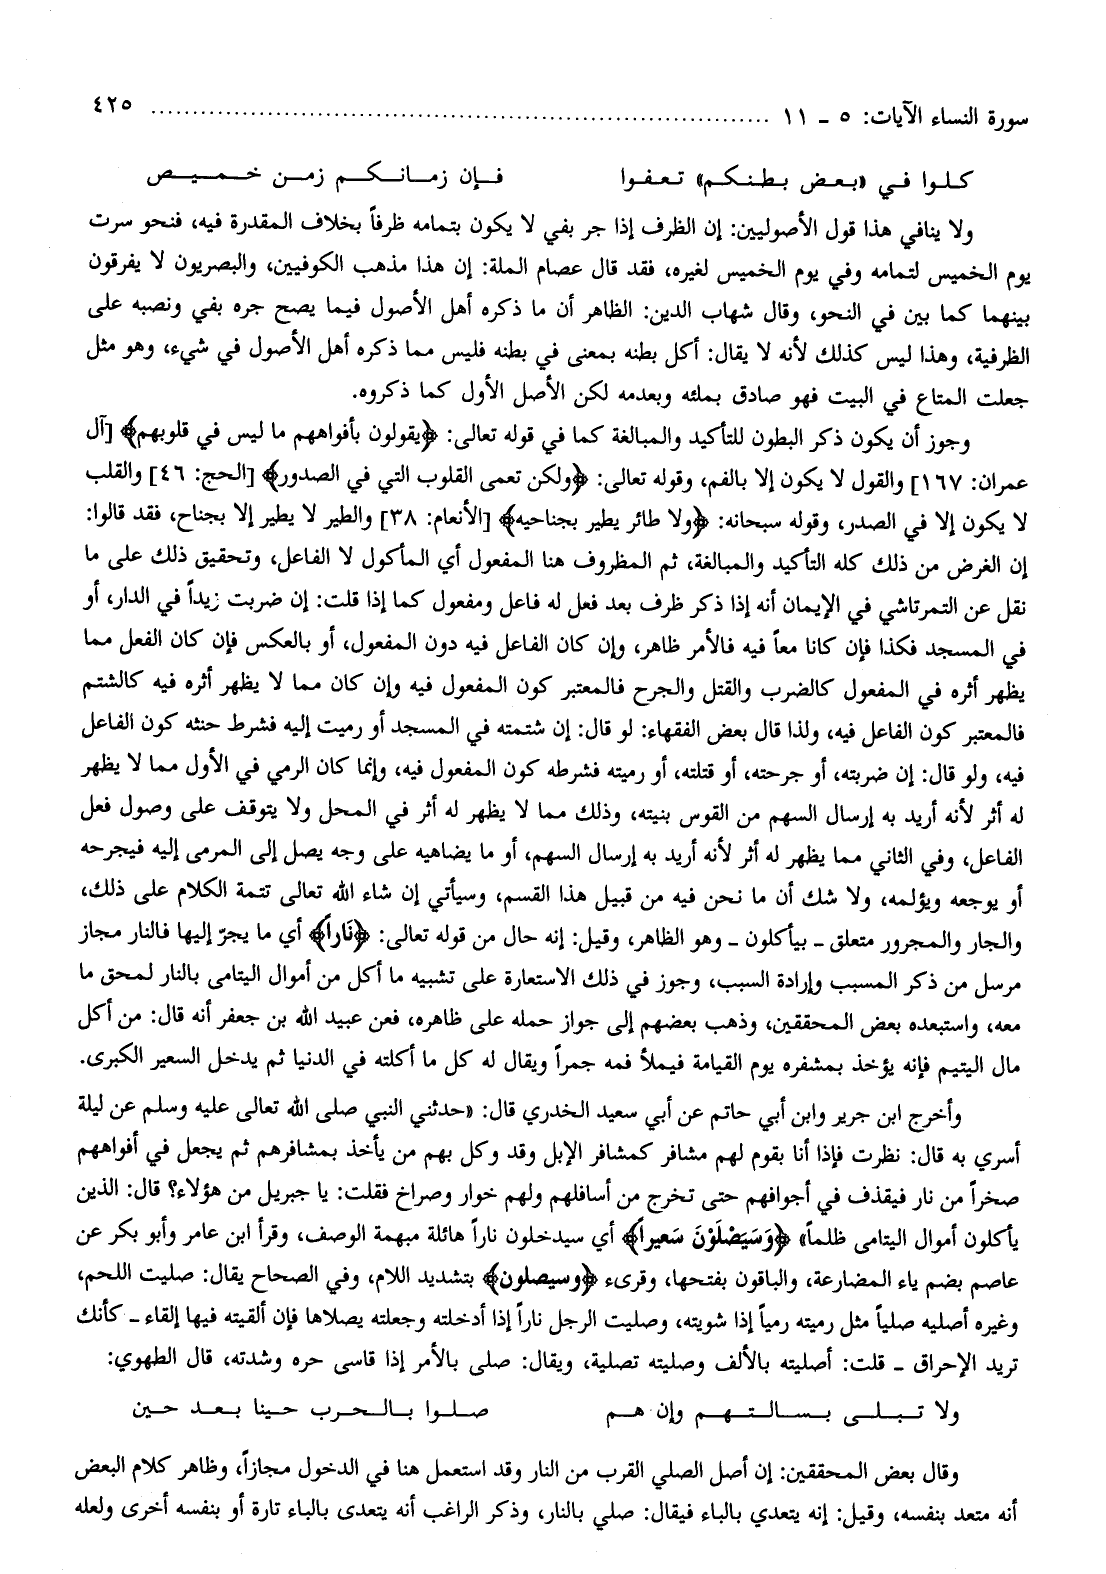 سورة النساء الآيات: ٥ ـ ١١ ........................................................................ ٤٢٥
كلوا في «بعض بطنكم» تعفوا فإن زمانكم زمن خميص
ولا ينافي هذا قول الأصوليين: إن الظرف إذا جر بفي لا يكون بتمامه ظرفاً بخلاف المقدرة فيه، فنحو سرت
يوم الخميس لتمامه وفي يوم الخميس لغيره، فقد قال عصام الملة: إن هذا مذهب الكوفيين، والبصريون لا يفرقون
بينهما كما بين في النحو، وقال شهاب الدين: الظاهر أن ما ذكره أهل الأصول فيما يصح جره بفي ونصبه على
الظرفية، وهذا ليس كذلك لأنه لا يقال: أكل بطنه بمعنى في بطنه فليس مما ذكره أهل الأصول في شيء، وهو مثل
جعلت المتاع في البيت فهو صادق بملئه وبعدمه لكن الأصل الأول كما ذكروه.
وجوز أن يكون ذكر البطون للتأكيد والمبالغة كما في قوله تعالى: ﴿يقولون بأفواههم ما ليس في قلوبهم﴾ [آل
عمران: ١٦٧] والقول لا يكون إلا بالفم، وقوله تعالى: ﴿ولكن تعمى القلوب التي في الصدور﴾ [الحج: ٤٦] والقلب
لا يكون إلا في الصدر، وقوله سبحانه: ﴿ولا طائر يطير بجناحيه﴾ [الأنعام: ٣٨] والطير لا يطير إلا بجناح، فقد قالوا:
إن الغرض من ذلك كله التأكيد والمبالغة، ثم المظروف هنا المفعول أي المأكول لا الفاعل، وتحقيق ذلك على ما
نقل عن التمرتاشي في الإيمان أنه إذا ذكر ظرف بعد فعل له فاعل ومفعول كما إذا قلت: إن ضربت زيداً في الدار، أو
في المسجد فكذا فإن كانا معاً فيه فالأمر ظاهر، وإن كان الفاعل فيه دون المفعول، أو بالعكس فإن كان الفعل مما
يظهر أثره في المفعول كالضرب والقتل والجرح فالمعتبر كون المفعول فيه وإن كان مما لا يظهر أثره فيه كالشتم
فالمعتبر كون الفاعل فيه، ولذا قال بعض الفقهاء: لو قال: إن شتمته في المسجد أو رميت إليه فشرط حنثه كون الفاعل
فيه، ولو قال: إن ضربته، أو جرحته، أو قتلته، أو رميته فشرطه كون المفعول فيه، وإنما كان الرمي في الأول مما لا يظهر
له أثر لأنه أريد به إرسال السهم من القوس بنيته، وذلك مما لا يظهر له أثر في المحل ولا يتوقف على وصول فعل
الفاعل، وفي الثاني مما يظهر له أثر لأنه أريد به إرسال السهم، أو ما يضاهيه على وجه يصل إلى المرمى إليه فيجرحه
أو يوجعه ويؤلمه، ولا شك أن ما نحن فيه من قبيل هذا القسم، وسيأتي إن شاء الله تعالى تتمة الكلام على ذلك،
والجار والمجرور متعلق ـ بيأكلون ـ وهو الظاهر، وقيل: إنه حال من قوله تعالى: ﴿نَاراً﴾ أي ما يجرّ إليها فالنار مجاز
مرسل من ذكر المسبب وإرادة السبب، وجوز في ذلك الاستعارة على تشبيه ما أكل من أموال اليتامى بالنار لمحق ما
معه، واستبعده بعض المحققين، وذهب بعضهم إلى جواز حمله على ظاهره، فعن عبيد الله بن جعفر أنه قال: من أكل
مال اليتيم فإنه يؤخذ بمشفره يوم القيامة فيملأ فمه جمراً ويقال له كل ما أكلته في الدنيا ثم يدخل السعير الكبرى.
وأخرج ابن جرير وابن أبي حاتم عن أبي سعيد الخدري قال: «حدثني النبي صلى الله تعالى عليه وسلم عن ليلة
أسري به قال: نظرت فإذا أنا بقوم لهم مشافر كمشافر الإبل وقد وكل بهم من يأخذ بمشافرهم ثم يجعل في أفواههم
صخراً من نار فيقذف في أجوافهم حتى تخرج من أسافلهم ولهم خوار وصراخ فقلت: يا جبريل من هؤلاء؟ قال: الذين
يأكلون أموال اليتامى ظلماً» ﴿وَسَيَصْلَوْنَ سَعيراً﴾ أي سيدخلون ناراً هائلة مبهمة الوصف، وقرأ ابن عامر وأبو بكر عن
عاصم بضم ياء المضارعة، والباقون بفتحها، وقرىء ﴿وسيصلون﴾ بتشديد اللام، وفي الصحاح يقال: صليت اللحم،
وغيره أصليه صلياً مثل رميته رمياً إذا شويته، وصليت الرجل ناراً إذا أدخلته وجعلته يصلاها فإن ألقيته فيها إلقاء ـ كأنك
تريد الإحراق ـ قلت: أصليته بالألف وصليته تصلية، ويقال: صلى بالأمر إذا قاسى حره وشدته، قال الطهوي:
ولا تبلى بسالتهم وإن هم صلوا بالحرب حينا بعد حين
وقال بعض المحققين: إن أصل الصلي القرب من النار وقد استعمل هنا في الدخول مجازاً، وظاهر كلام البعض
أنه متعد بنفسه، وقيل: إنه يتعدي بالباء فيقال: صلي بالنار، وذكر الراغب أنه يتعدى بالباء تارة أو بنفسه أخرى ولعله